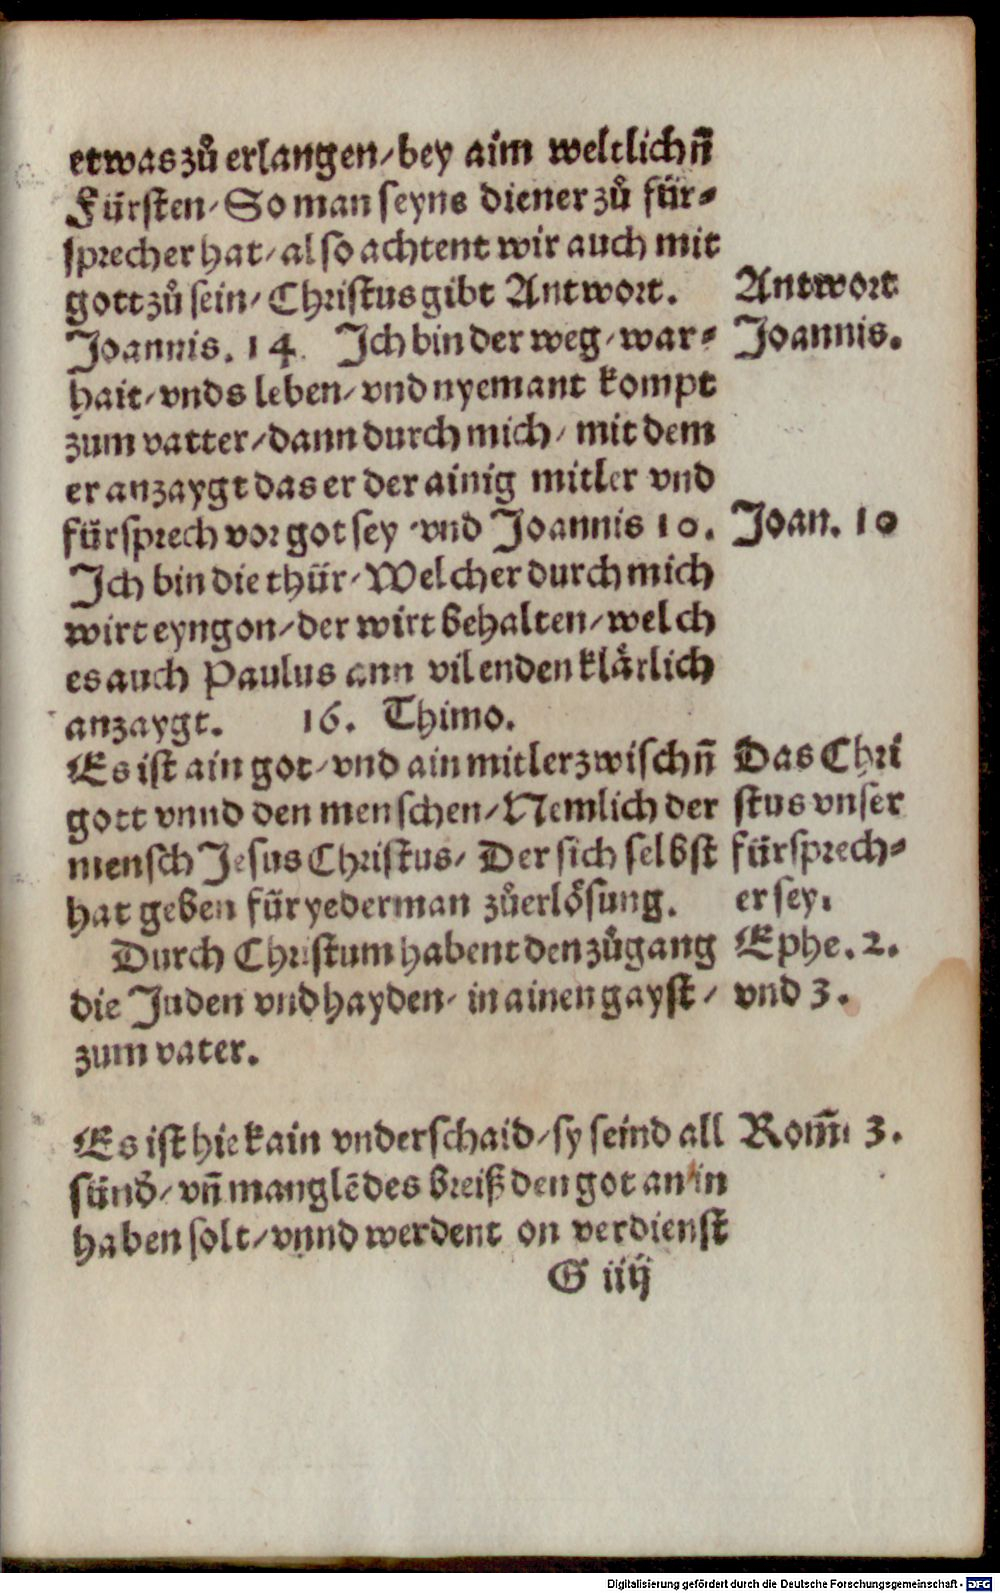 etwas zů erlangen/ bey aim weltlichñ
Fürsten/ So man seyne diener zů für⸗
sprecher hat/ also achtent wir auch mit
gott zů sein/ Christus gibt Antwort.
Antwort
Joannis. 14. Ich bin der weg/ war⸗
Joannis.
hait/ vnds leben/ vnd nyemant kompt
zum vatter/ dann durch mich/ mit dem
er anzaygt das er der ainig mitler vnd
fürsprech vor got sey/ vnd Joannis 10.
Joan. 10
Ich bin die thür/ Welcher durch mich
wirt eyngon/ der wirt behalten/ welch
es auch Paulus ann vil enden klärlich
anzaygt. 16. Thimo.
Es ist ain got/ vnd ain mitler zwischñ
Das Chri
gott vnnd den menschen/ Nemlich der
stus vnser
mensch Jesus Christus/ Der sich selbst
fürsprech⸗
hat geben für yederman zů erlösung.
er sey.
Durch Christum habent den zůgang
Ephe. 2.
die Juden vnd hayden/ in ainen gayst/
vnd 3.
zum vater.
Es ist hie kain vnderschaid/ sy seind all
Rom̃. 3.
sünd̕/ vñ manglẽ des breiß den got an in
haben solt/ vnnd werdent on verdienst
G iiij
Digitalisierung gefördert durch die Deutsche Forschungsgemeinschaft - DFG